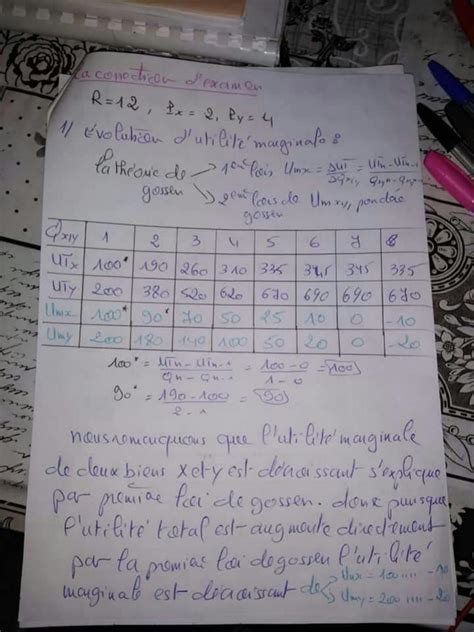 la correction d'examen
R=12 , Px = 2, Py = 4
1) Évolution d'utilité marginale :
la théorie de gossen → 1ère lois Umx = ΔUT/ΔQx,y = UTn - UTn-1/Qn - Qn-1
→ 2ème lois de gossen Umx,y pondérée
Qx/y 1 2 3 4 5 6 7 8
UTx 100* 190 260 310 335 345 345 335
UTy 200 380 520 620 670 690 690 670
Umx 100* 90* 70 50 25 10 0 -10
Umy 200 180 140 100 50 20 0 -20
100* = UTn - UTn-1/Qn - Qn-1 = 100-0/1-0 = 100
90* = 190-100/2-1 = 90
nous remarquons que l'utilité marginale
de deux biens x et y est décroissant s'explique
par première loi de gossen. donc puisque
l'utilité total est augmente directement
par la premiere loi de gossen l'utilité
marginale est décroissant de Umx = 100 .... -10
Umy = 200 .... -20